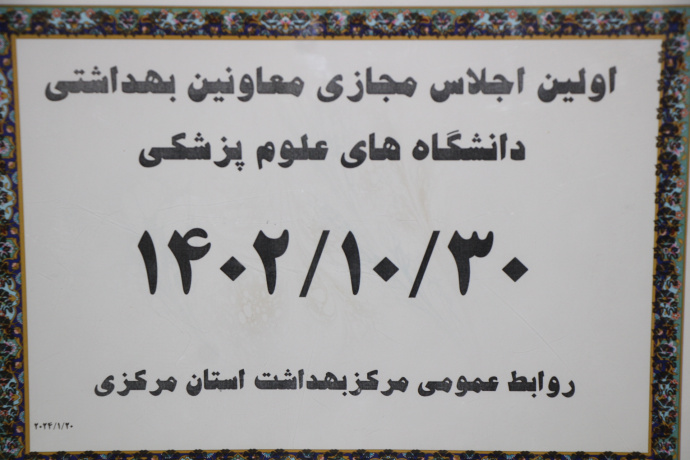 اولین اجلاس مجازی معاونین بهداشتی
دانشگاه های علوم پزشکی
۱۴۰۲/۱۰/۳۰
روابط عمومی مرکزبهداشت استان مرکزی
۲۰۲۴/۱/۲۰